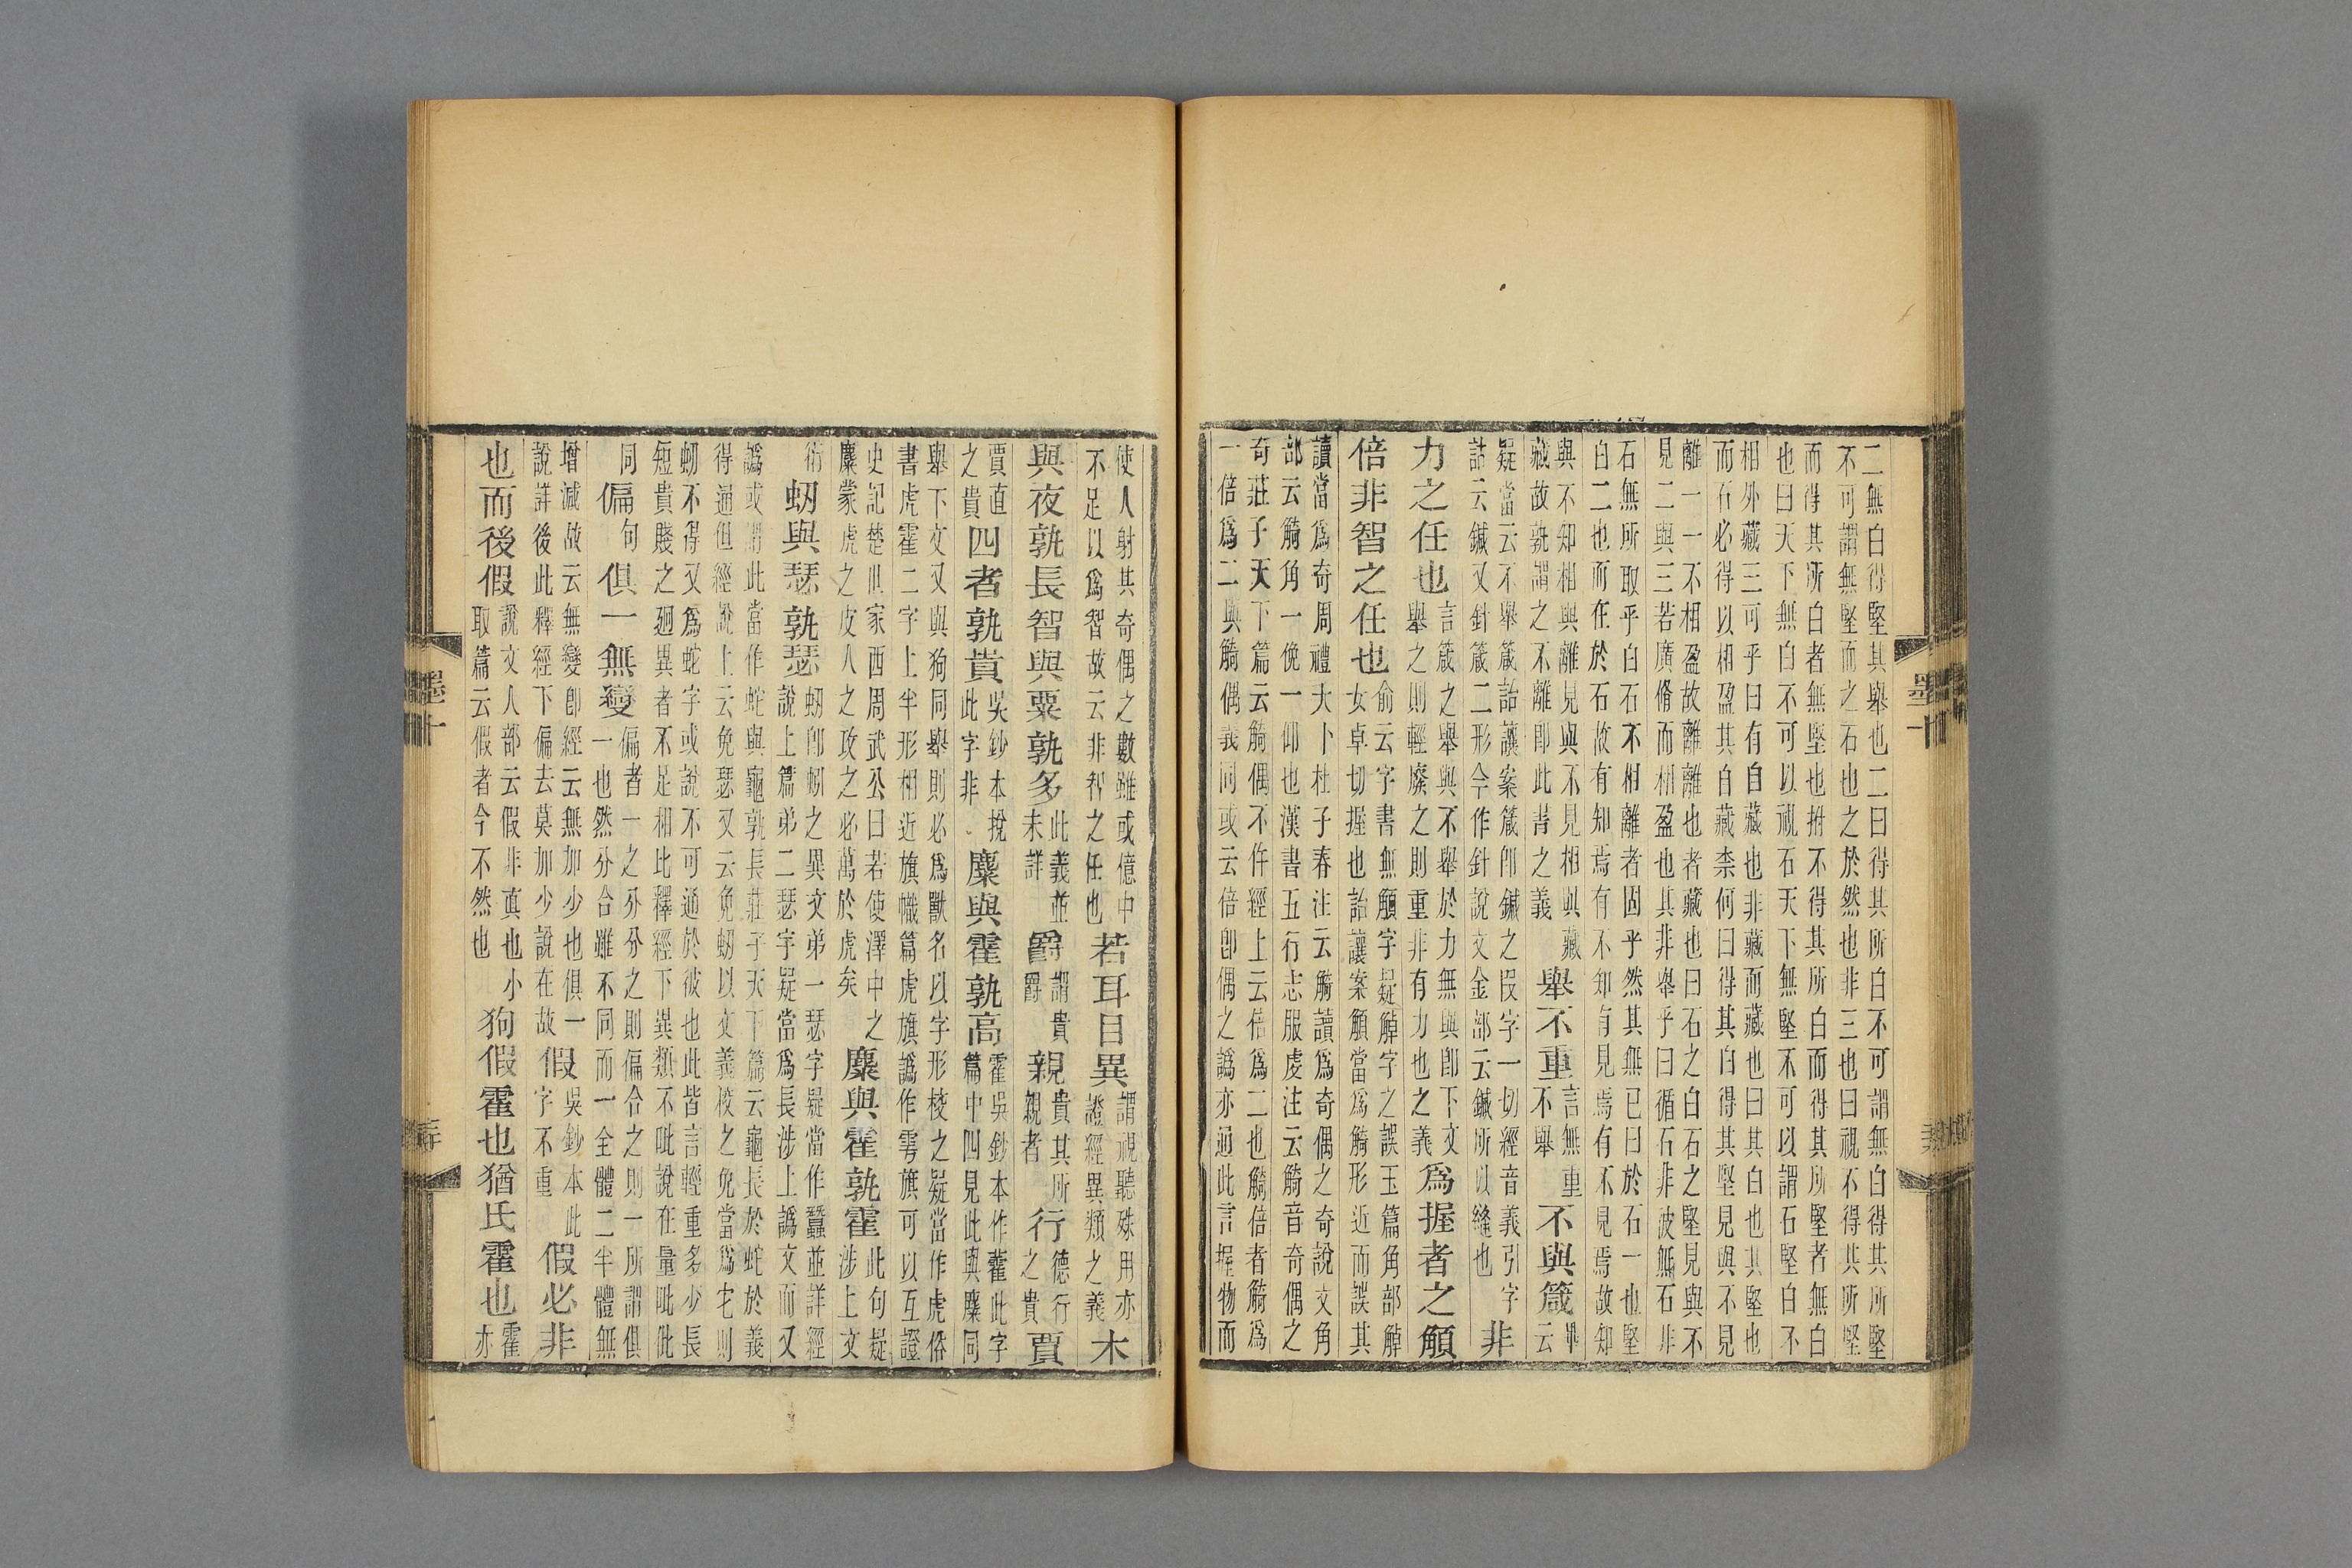 二無白得堅其舉也二曰得其所白不可謂無白得其所堅
不可謂無堅而之石也之於然也非三也曰視不得其所堅
而得其所白者無堅也拊不得其所白而得其所堅者無白
也曰天下無白不可以視石天下無堅不可以謂石堅白不
相外藏三可乎曰有自藏也非藏而藏也曰其白也其堅也
而石必得以相盈其自藏柰何曰得其白得其堅見與不見
離一一不相盈故離離也者藏也曰石之白石之堅見與不
見二與三若廣脩而相盈也其非舉乎曰循石非彼無石非
石無所取乎白石不相離者固乎然其無已曰於石一也堅
白二也而在於石故有知焉有不知有見焉有不見焉故知
與不知相與離見與不見相與藏
藏故孰謂之不離即此書之義
舉不重
言無重
不舉
不與箴
畢
云
疑當云不舉箴詒讓案箴即鍼之叚字一切經音義引字
詁云鍼又針箴二形今作針說文金部云鍼所以縫也
非
力之任也
言箴之舉與不舉於力無與即下文
舉之則輕廢之則重非有力也之義
爲握者之⿰角頁
倍非智之任也
俞云字書無⿰角頁字疑⿰角卓字之誤玉篇角部⿰角卓
女卓切握也詒讓案⿰角頁當爲觭形近而誤其
讀當爲奇周禮大卜杜子春注云觭讀爲奇偶之奇說文角
部云觭角一俛一仰也漢書五行志服虔注云觭音奇偶之
奇莊子天下篇云觭偶不仵經上云倍爲二也觭倍者觭爲
一倍爲二與觭偶義同或云倍即偶之譌亦通此言握物而
使人射其奇偶之數雖或億中
不足以爲智故云非智之任也
若耳目異
謂視聽殊用亦
證經異類之義
木
與夜孰長智與粟孰多
此義並
未詳
爵
謂貴
爵
親
貴其所
親者
行
德行
之貴
賈
賈直
之貴
四者孰貴
吳鈔本挩
此字非
麋與霍孰高
霍吳鈔本作藿此字
篇中四見此與麋同
舉下文又與狗同舉則必爲獸名以字形校之疑當作虎俗
書虎霍二字上半形相近旗幟篇虎旗譌作雩旗可以互證
史記楚世家西周武公曰若使澤中之
麋蒙虎之皮人之攻之必萬於虎矣
麋與霍孰霍
此句疑
涉上文
衍
蚓與瑟孰瑟
蚓即蚓之異文弟一瑟字疑當作蠶並詳經
說上篇弟二瑟字疑當爲長涉上譌文而又
譌或謂此當作蛇與龜孰長莊子天下篇云龜長於蛇於義
得通但經說上云免瑟又云免蚓以文義校之免當爲它則
蚓不得又爲蛇字或說不可通於彼也此皆言輕重多少長
短貴賤之迥異者不足相比釋經下異類不吡說在量吡仳
同
偏
句
俱一無變
偏者一之分分之則偏合之則一所謂俱
一也然分合雖不同而一全體二半體無
增減故云無變即經云無加少也俱一
說詳後此釋經下偏去莫加少說在故
假
吳鈔本此
字不重
假必非
也而後假
說文人部云假非真也小
取篇云假者今不然也
狗假霍也猶氏霍也
霍
亦
墨十